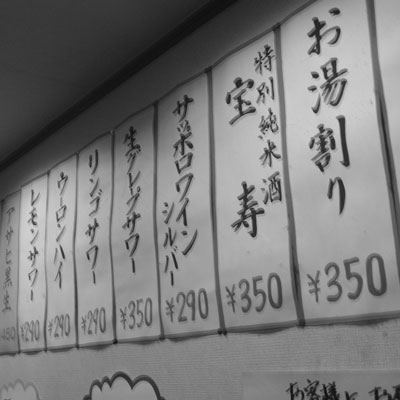 お湯割り
¥350
特別純米酒
宝寿
¥350
サッポロワイン
シルバー
¥290
生グレープサワー
¥350
リンゴサワー
¥290
ウーロンハイ
¥290
レモンサワー
¥290
アサヒ黒生
480
お客様